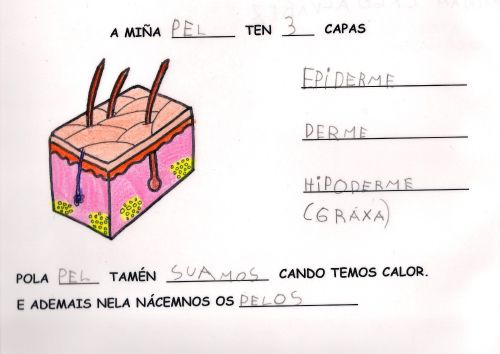 A MIÑA PEL TEN 3 CAPAS
EPIDERME
DERME
HIPODERME
(GRÁXA)
POLA PEL TAMÉN SUAMOS CANDO TEMOS CALOR.
E ADEMAIS NELA NÁCEMNOS OS PELOS